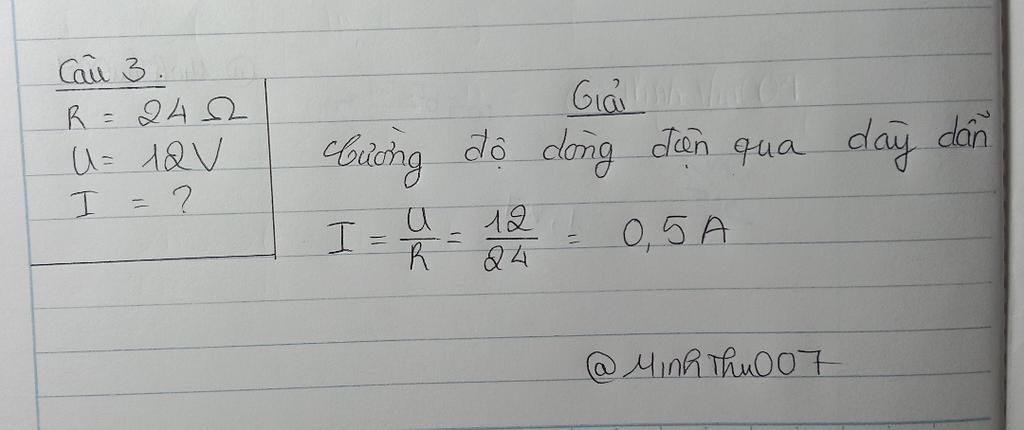 Câu 3.
R = 24 Ω
U = 12V
I = ?
Giải
Cường độ dòng điện qua dây dẫn
I = U/R = 12/24 = 0,5 A
@MinhThu007